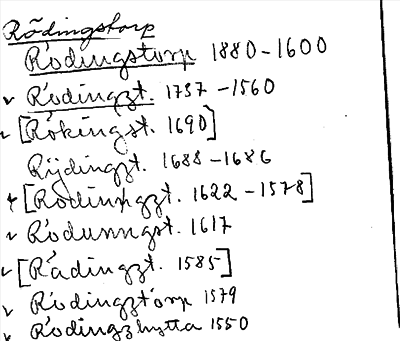 Rödingstorp
Rödingstorp 1880-1600
Rödingzt. 1737-1560
[Rökingst. 1690]
Rijdingzt. 1688-1686
[Rödinngzt. 1622-1578]
Rödunngst. 1617
[Rådingzt. 1585]
Rödingztorp 1579
Rödingzhytta 1550